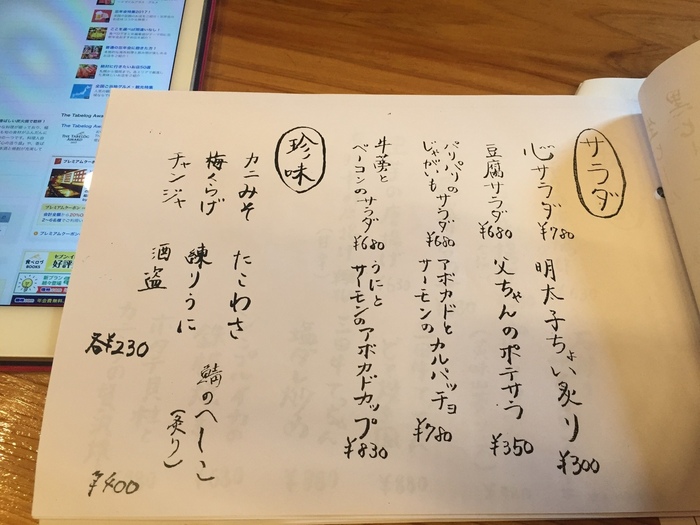 サラダ
心サラダ ¥780
明太子ちょい炙り ¥300
豆腐サラダ ¥680
父ちゃんのポテサラ ¥350
パリパリの
じゃがいもサラダ ¥680
アボカドと
サーモンのカルパッチョ ¥780
牛蒡と
ベーコンのサラダ ¥680
うにと
サーモンのアボカドカップ ¥830
珍味
カニみそ
たこわさ
梅くらげ
練りうに
チャンジャ
酒盗
各¥230
鯖のへしこ
(炙り)
¥400